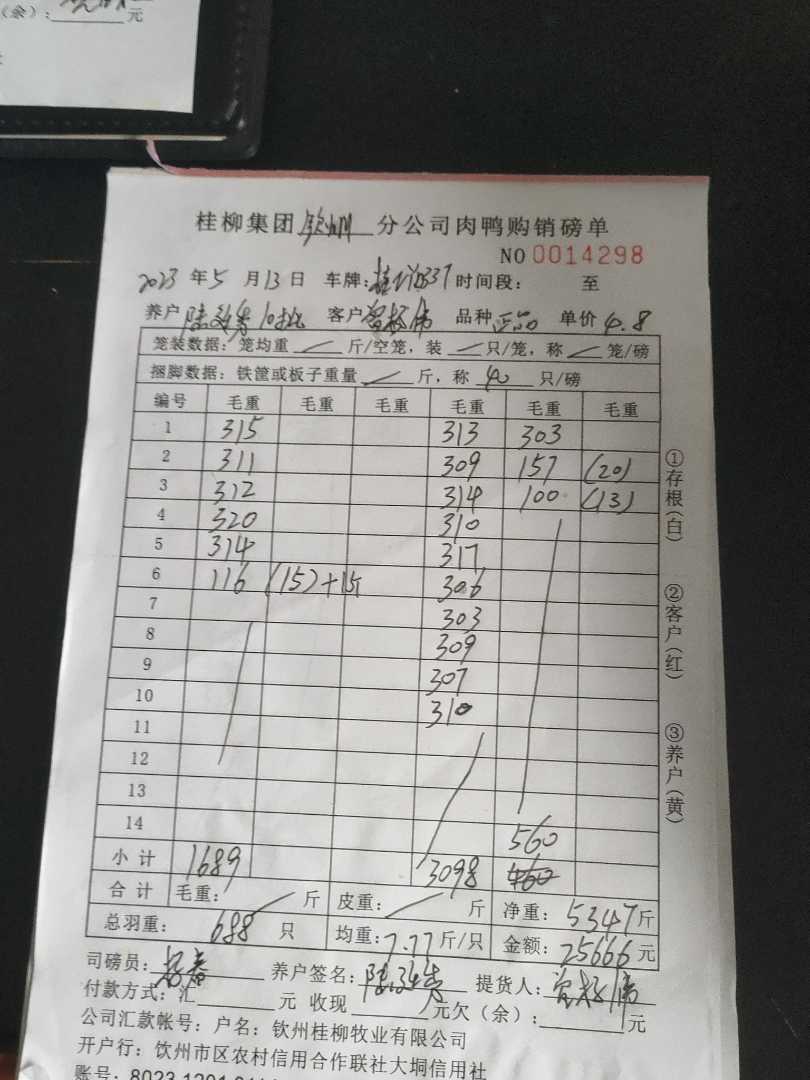 （余）：元
桂柳集团钦州分公司肉鸭购销磅单
NO 0014298
2023年5月13日 车牌： 时间段： 至
养户 10批 客户 品种 正品 单价 4.8
笼装数据：笼均重 斤/空笼，装 只/笼，称 笼/磅
捆脚数据：铁筐或板子重量 斤，称 40 只/磅
编号 毛重 毛重 毛重 毛重 毛重 毛重
1 315 313 303
2 311 309 157 (20)
3 312 314 100 (13)
4 320 310
5 314 317
6 116 (15)+15 306
7 303
8 309
9 307
10 310
11
12
13
14 560
小计 1689 3098 460
合计 毛重： 斤 皮重： 斤 净重：5347斤
总羽重：688 只 均重：7.77斤/只 金额：25666元
司磅员： 养户签名： 提货人：
付款方式：汇 元 收现 元欠（余）： 元
公司汇款帐号：户名：钦州桂柳牧业有限公司
开户行：钦州市区农村信用合作联社大垌信用社
账号：8023 1201
①存根（白）
②客户（红）
③养户（黄）